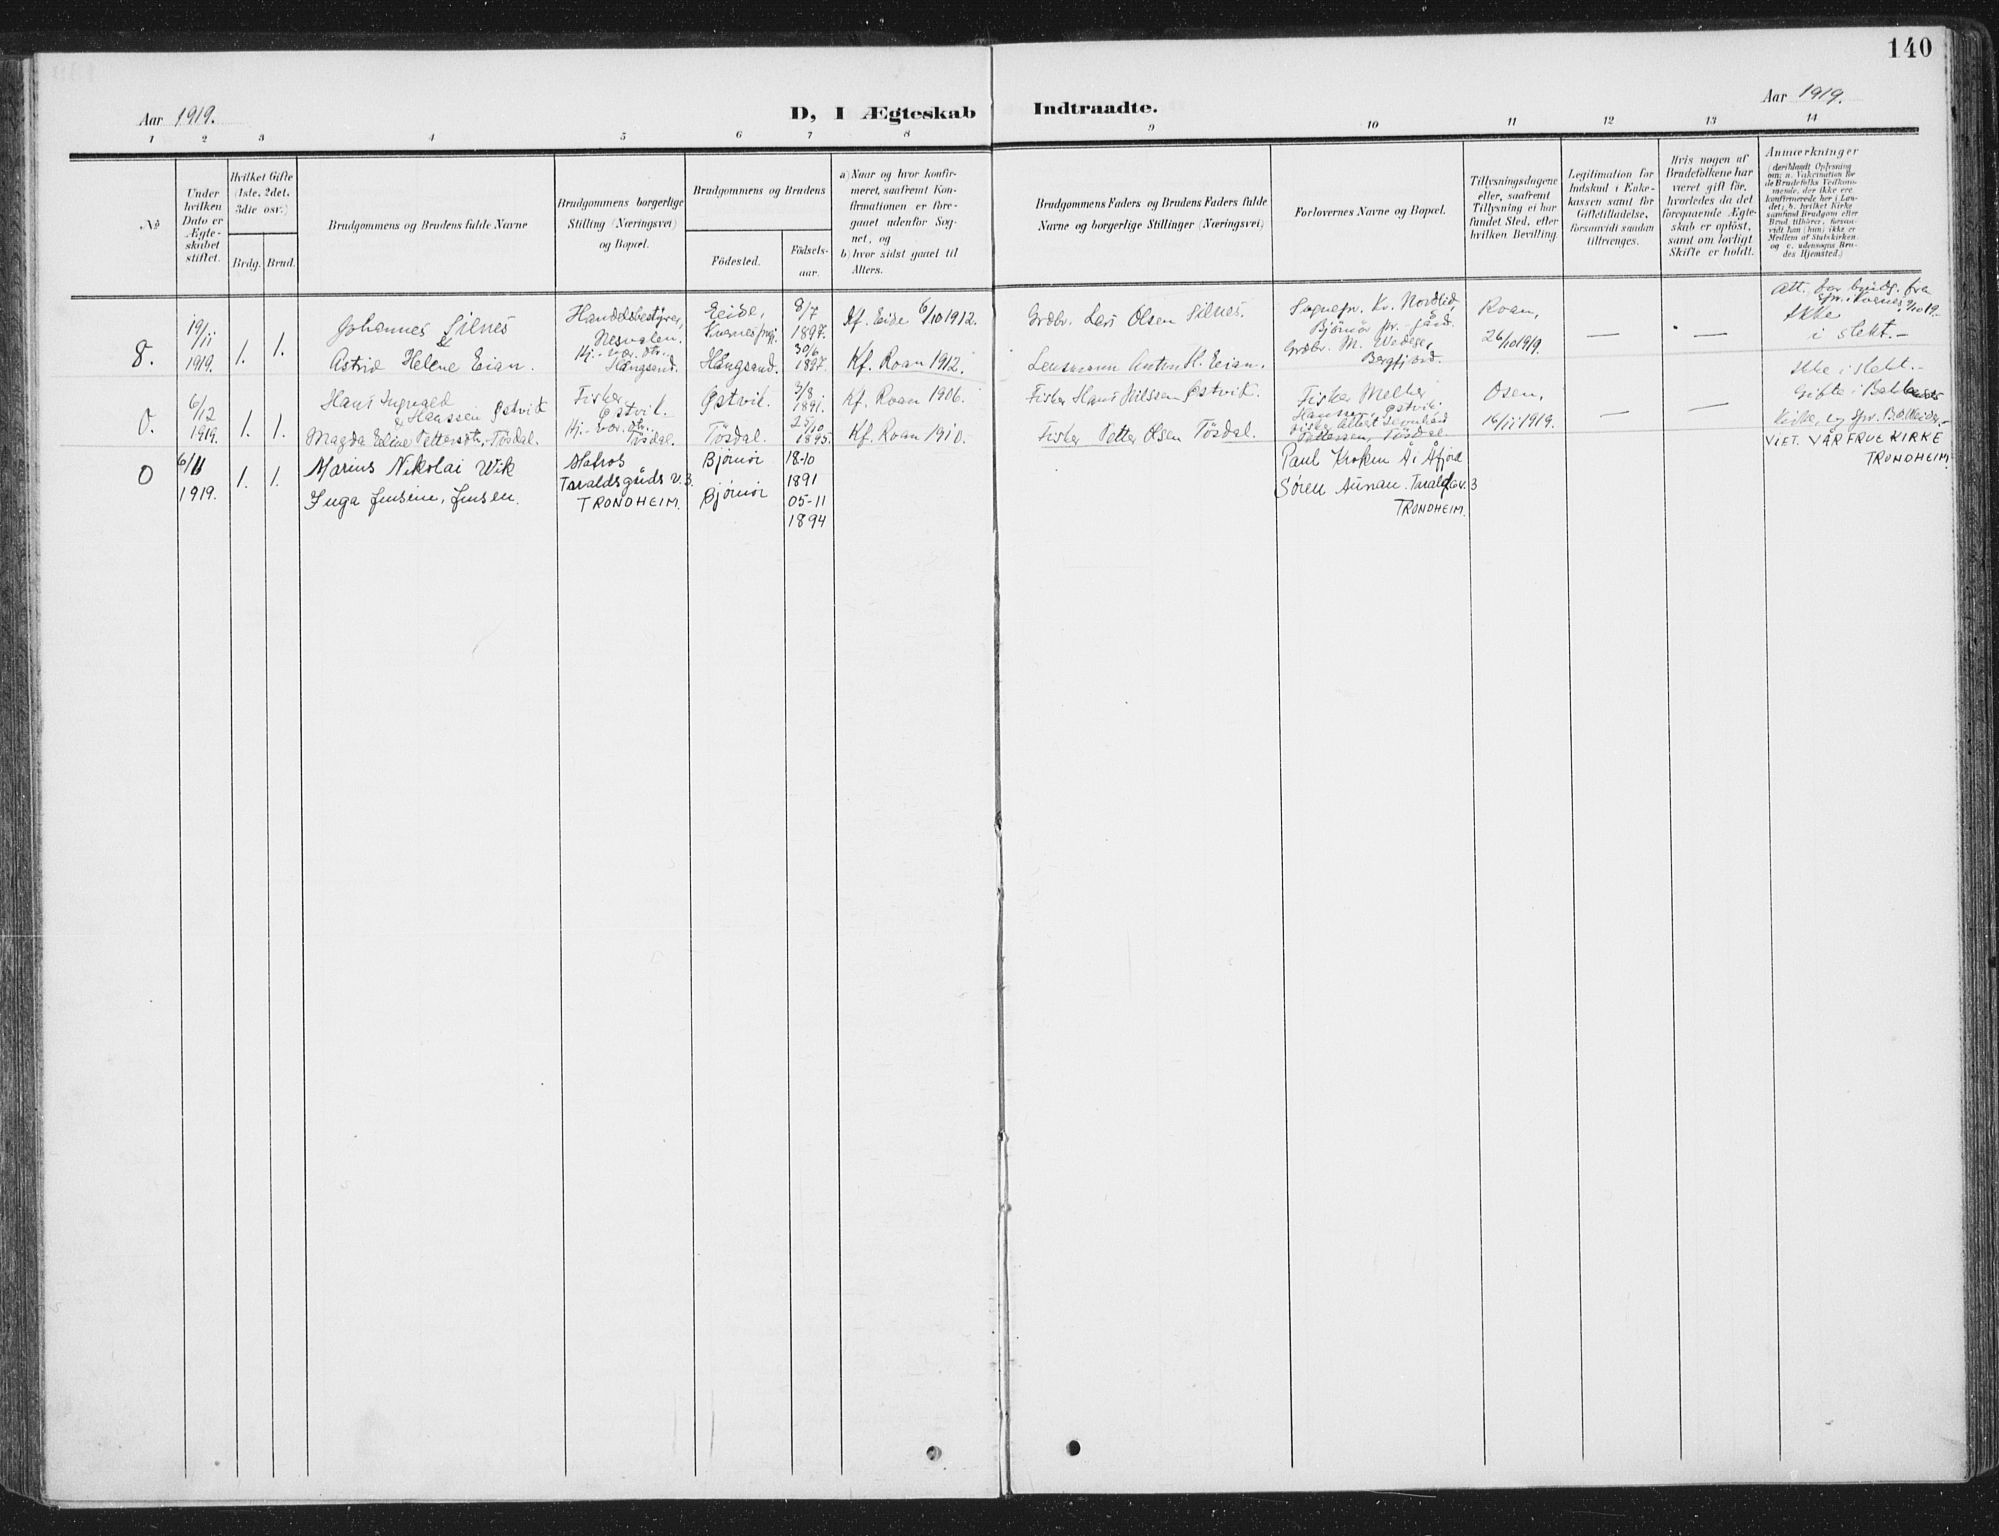 140
Aar 1919.
D, I Ægteskab Indtraadte.
Aar 1919.
1 2 3 4 5 6 7 8 9 10 11 12 13 14
No
Under hvilken Dato er Ægteskabet stiftet.
Hvilket Gifte (1ste, 2det, 3die osv.)
Brdg. Brud.
Brudgommens og Brudens fulde Navne
Brudgommens borgerlige Stilling (Næringsvei) og Bopæl.
Brudgommens og Brudens
Födested.
Födselsaar.
a) Naar og hvor konfirmeret, saafremt Konfirmationen er foregaaet udenfor Sognet, og
b) hvor sidst gaaet til Alters.
Brudgommens Faders og Brudens Faders fulde Navne og borgerlige Stillinger (Næringsvei)
Forlovernes Navne og Bopæl.
Tillysningsdagene eller, saafremt Tillysning ei har fundet Sted, efter hvilken Bevilling.
Legitimation for Indskud i Enkekassen samt for Giftetilladelse, forsaavidt saadan tiltrænges.
Hvis nogen af Brudefolkene har været gift før, hvorledes da det foregaaende Ægteskab er opløst, samt om lovligt Skifte er holdt.
Anmærkninger
(deriblandt Oplysning om: a. Vakcination for de Brudefolks Vedkommende, der ikke ere konfirmerede her i Landet; b. hvilket Kirkesamfund Brudgom eller Brud tilhører, forsaavidt han (hun) ikke er Medlem af Statskirken, og c. udensogns Brudes Hjemsted.)
8.
19/11 1919.
1. 1.
Johannes Silnes
&
Astrid Helene Eian.
Handelsbestyrer, Nesvalen.
Hj. vær. dtr. Hangsand.
Eide, Kvernes prgj.
Hangsand.
8/7 1897.
30/6 1897.
Kf. Eide 6/10 1912.
Kf. Roan 1912.
Grdbr. Lars Olsen Silnes.
Lensmann Anton H. Eian.
Sognepr. K. Nordlid, Bjørnør pr.gård.
Grdbr. M. Wedege, Bergfjord.
Roan, 26/10 1919.
— —
Att. for lysnlg. fra Spr. i Kvernes 9/10 19.
Ikke i slekt.-
0.
6/12 1919.
1. 1.
Hans Ingvald Hanssen Østvik
&
Magda Eline Pettersdtr. Tösdal.
Fisker, Østvik.
Hj. vær. dtr. Tösdal.
Østvik.
Tösdal.
3/8 1891.
25/10 1895.
Kf. Roan 1906.
Kf. Roan 1910.
Fisker Hans Nilssen Østvik.
Fisker Petter Olsen Tösdal.
Fisker Melker Hanssen, Østvik.
Fisker Albert Pettersen, Tösdal.
Osen, 16/11 1919.
— —
Ikke i slekt.-
Gifte i Kirke, og Spr.
0
6/11 1919.
1. 1.
Marius Nikolai Wik
Inga Jensine, Jensen.
Matros
Taraldsgårds v. 3.
TRONDHEIM.
Bjørnör
Bjørnör
18-10 1891
05-11 1894
Paul Kroken Å i Åfjord
Sören Aunan. Taraldsg.v. 3
TRONDHEIM.
VIET. VÅR FRUE KIRKE
TRONDHEIM.